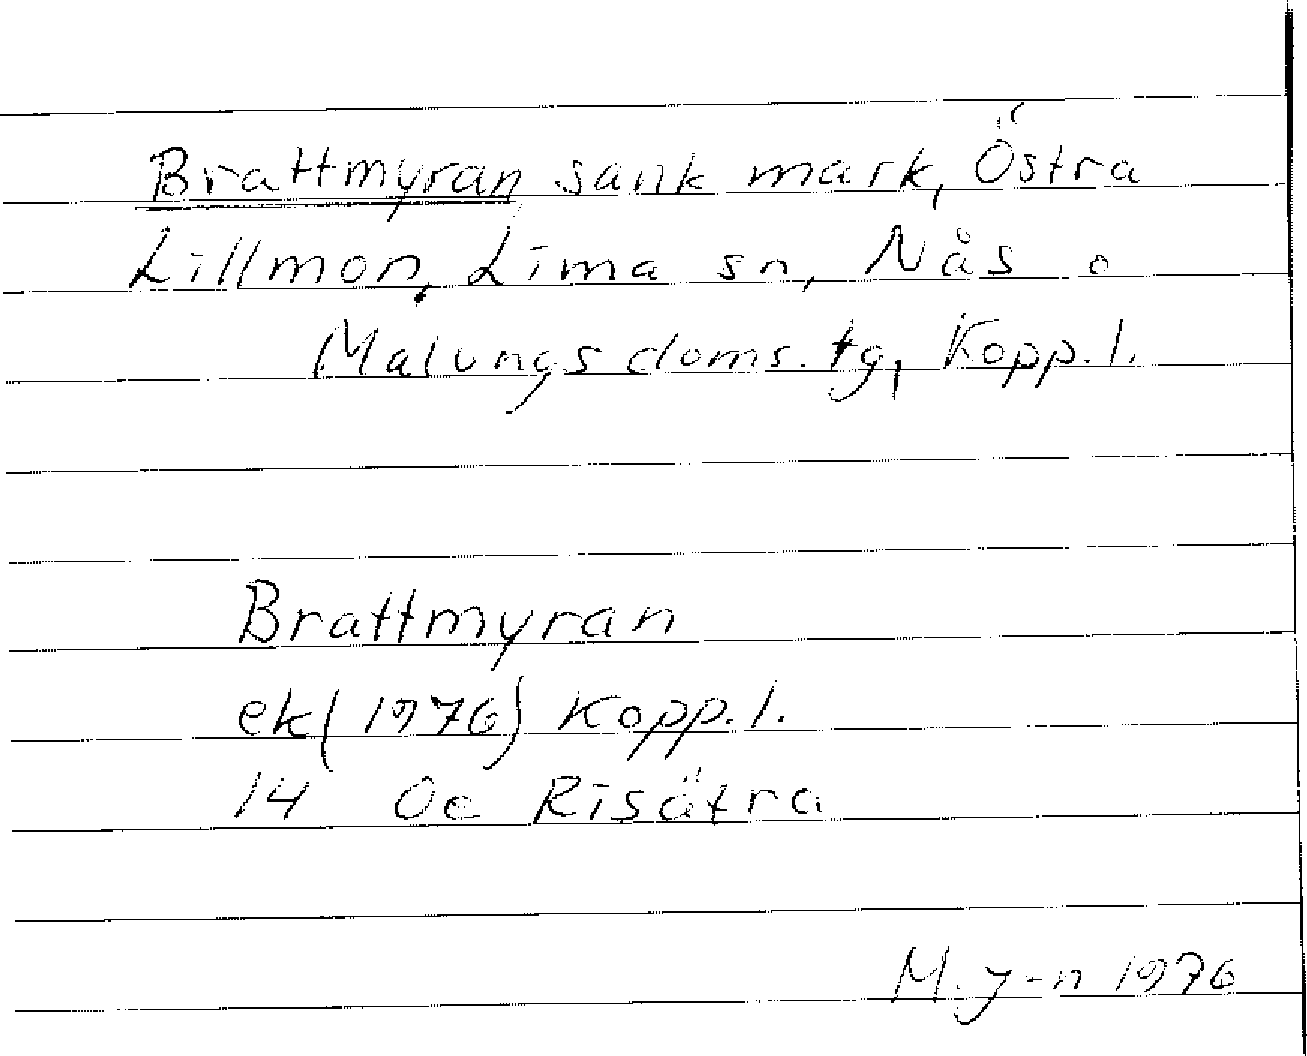 Brattmyran sank mark, Östra
Lillmon, Lima sn, Nås o
Malungs doms. tg, Kopp. l.
Brattmyran
ek (1976) Kopp. l.
14 Oe Risätra
M. J-n 1976